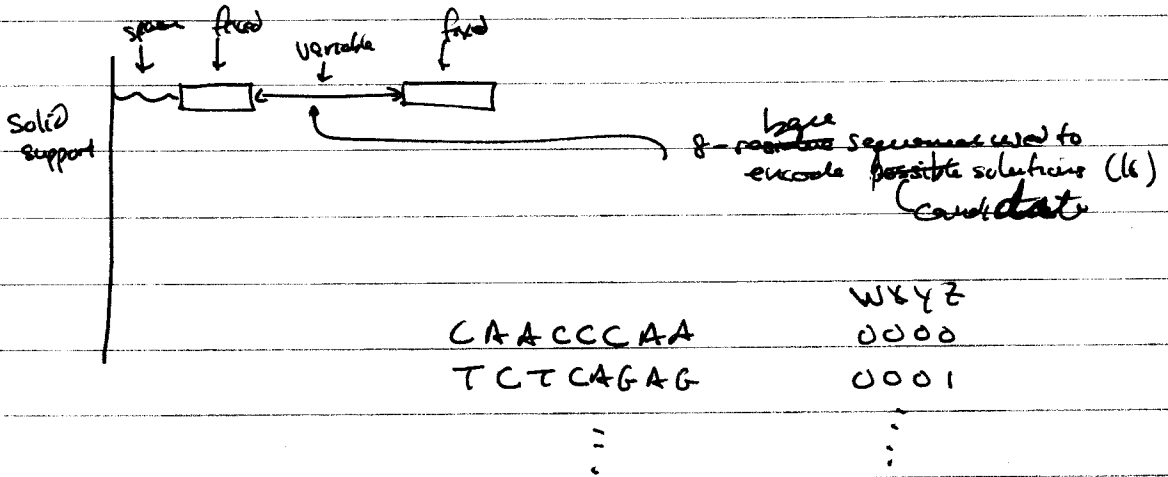 fixed fixed
variable
Solid
support
base
8-residue sequences used to
encode possible solutions (16)
candidate
WXYZ
CAACCCAA 0000
TCTCAGAG 0001